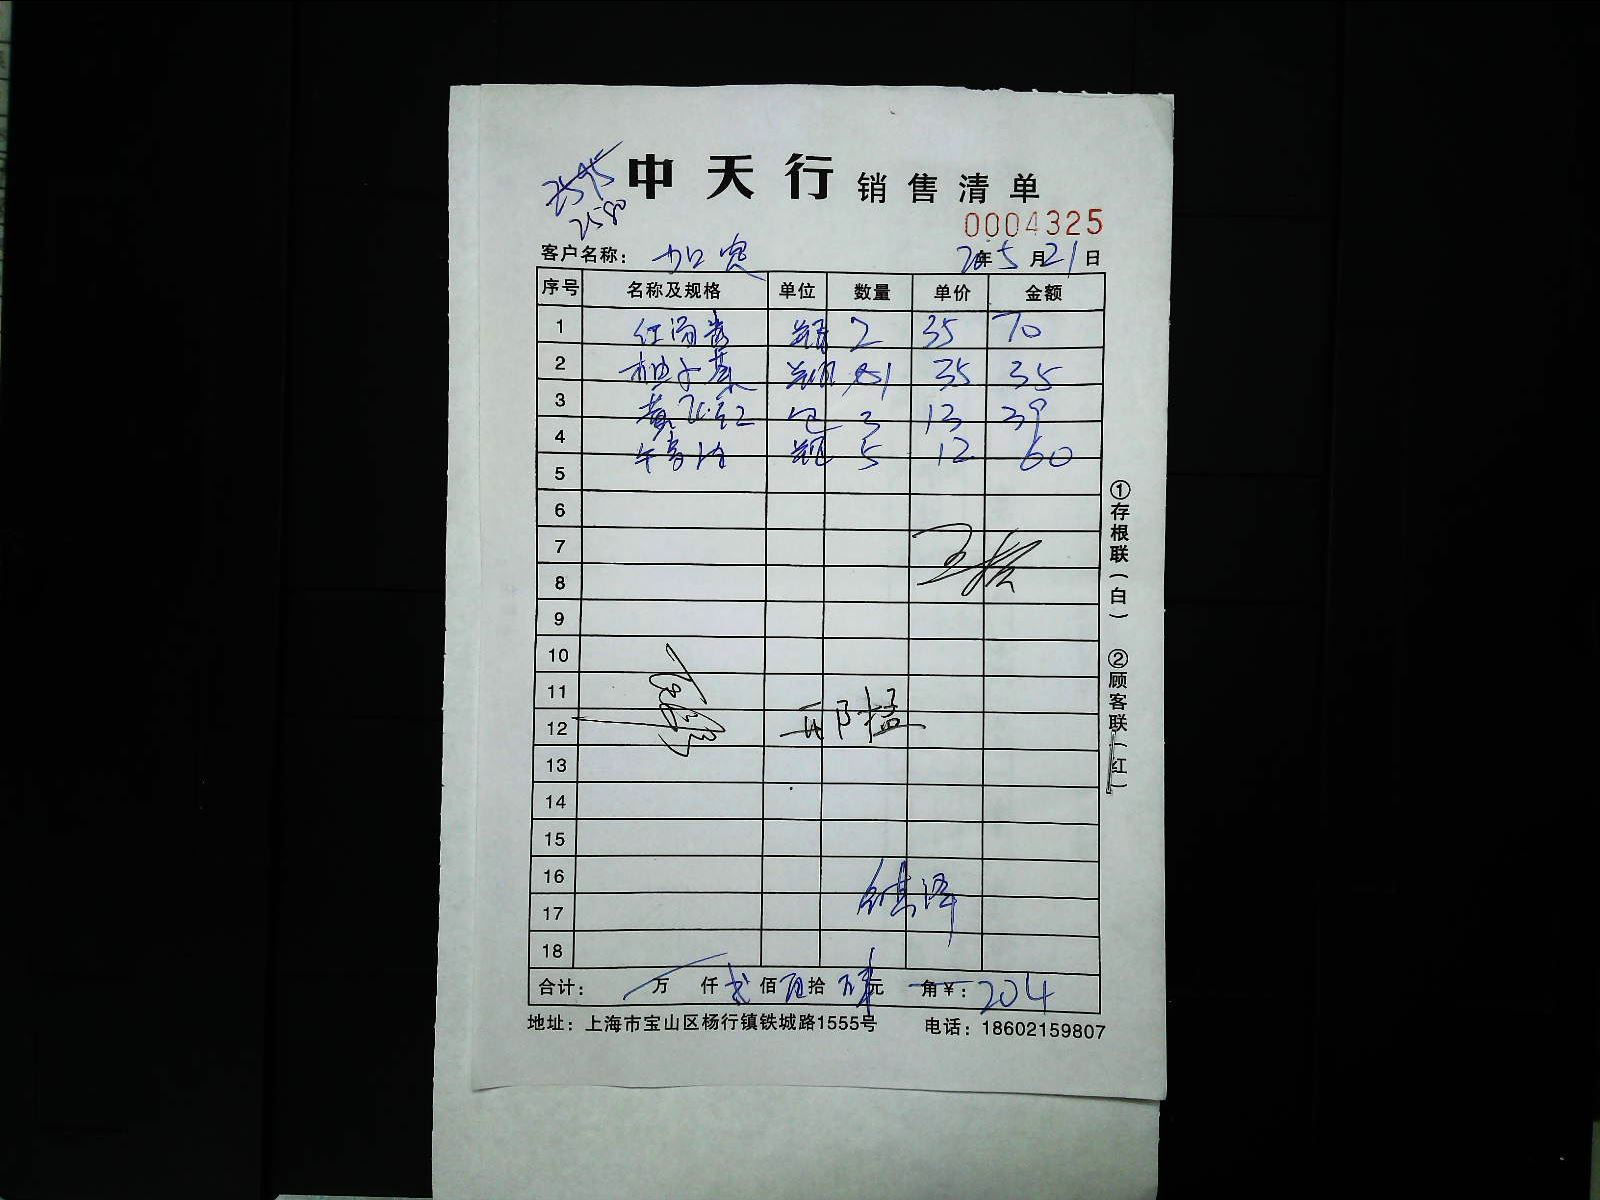 2595
2580
中天行 销售清单
0004325
客户名称： 加宾 20年5月21日
序号 名称及规格 单位 数量 单价 金额
1 2 35 70
2 柚子 1 35 35
3 黄飞红 包 3 13 39
4 瓶 5 12 60
5
6
7
8
9
10
11
12 邢猛
13
14
15
16
17
18
合计： 万 仟 贰佰 拾 肆元 角 ¥：204
地址：上海市宝山区杨行镇铁城路1555号 电话：18602159807
①存根联（白） ②顾客联（红）